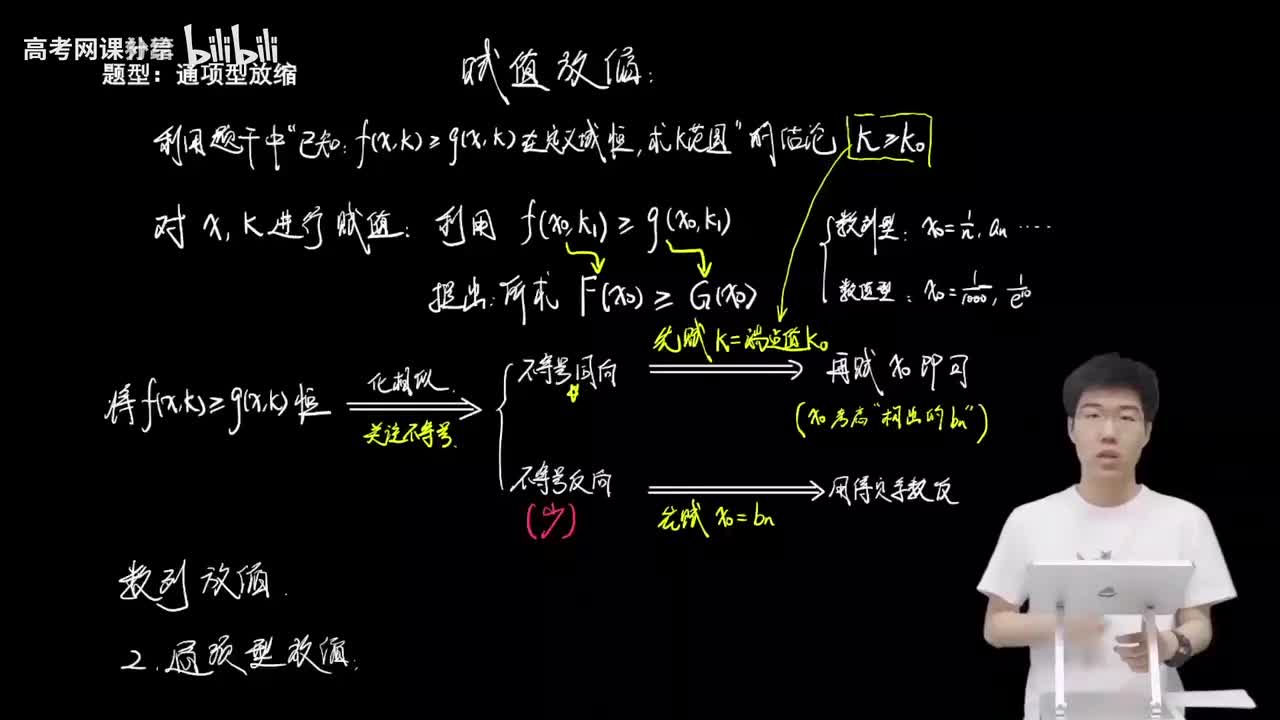 高考网课补给 bilibili
题型：通项型放缩
赋值放缩：
利用题干中“已知：f(x,k)≥g(x,k)在定义域恒，求k范围”的结论 k≥k₀
对 x, k 进行赋值：利用 f(x₀,k₁)≥g(x₀,k₁)
推出：所求 F(x₀)≥G(x₀)
数列型：x₀=1/n, aₙ ····
数值型：x₀=1/1000, 1/e¹⁰
将 f(x,k)≥g(x,k) 恒
化相似
关注不等号
不等号同向
先赋 k=端点值k₀
再赋 x₀ 即可
(x₀考虑“构出的bₙ”)
不等号反向
(少)
先赋 x₀=bₙ
数列放缩.
2.